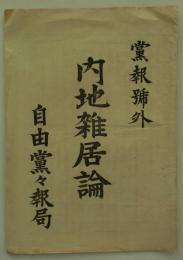 黨報號外
内地雑居論
自由黨々報局